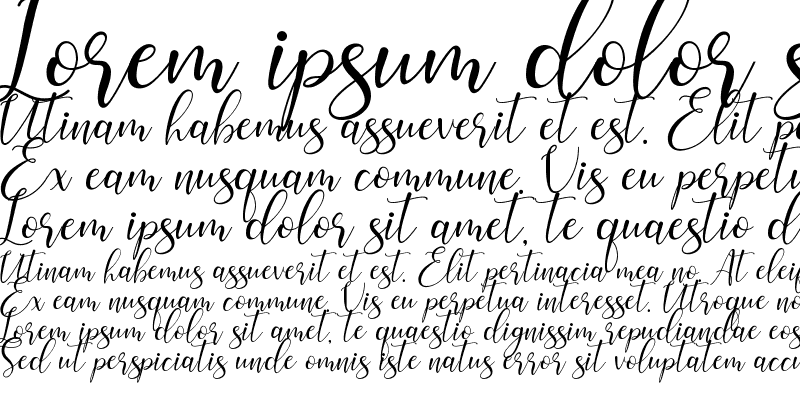 Lorem ipsum dolor s
Utinam habemus assueverit et est. Elit p
Ex eam nusquam commune. Vis eu perpetu
Lorem ipsum dolor sit amet, te quaestio d
Utinam habemus assueverit et est. Elit pertinacia mea no. At eleif
Ex eam nusquam commune. Vis eu perpetua interesset. Utroque no
Lorem ipsum dolor sit amet, te quaestio dignissim repudiandae eos
Sed ut perspiciatis unde omnis iste natus error sit voluptatem accu